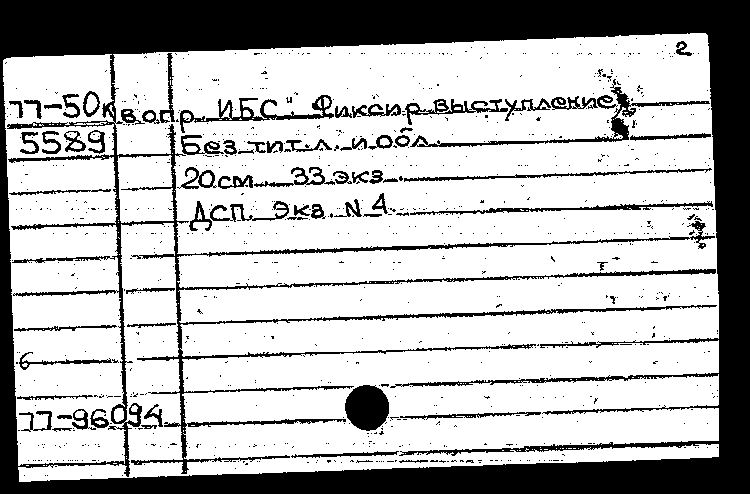 2
77-50к вопр. ИБС". Фиксир. выступление
5589 Без тит. л. и обл.
20 см. 33 экз.
ДСП. Экз. N 4.
6
77-96094